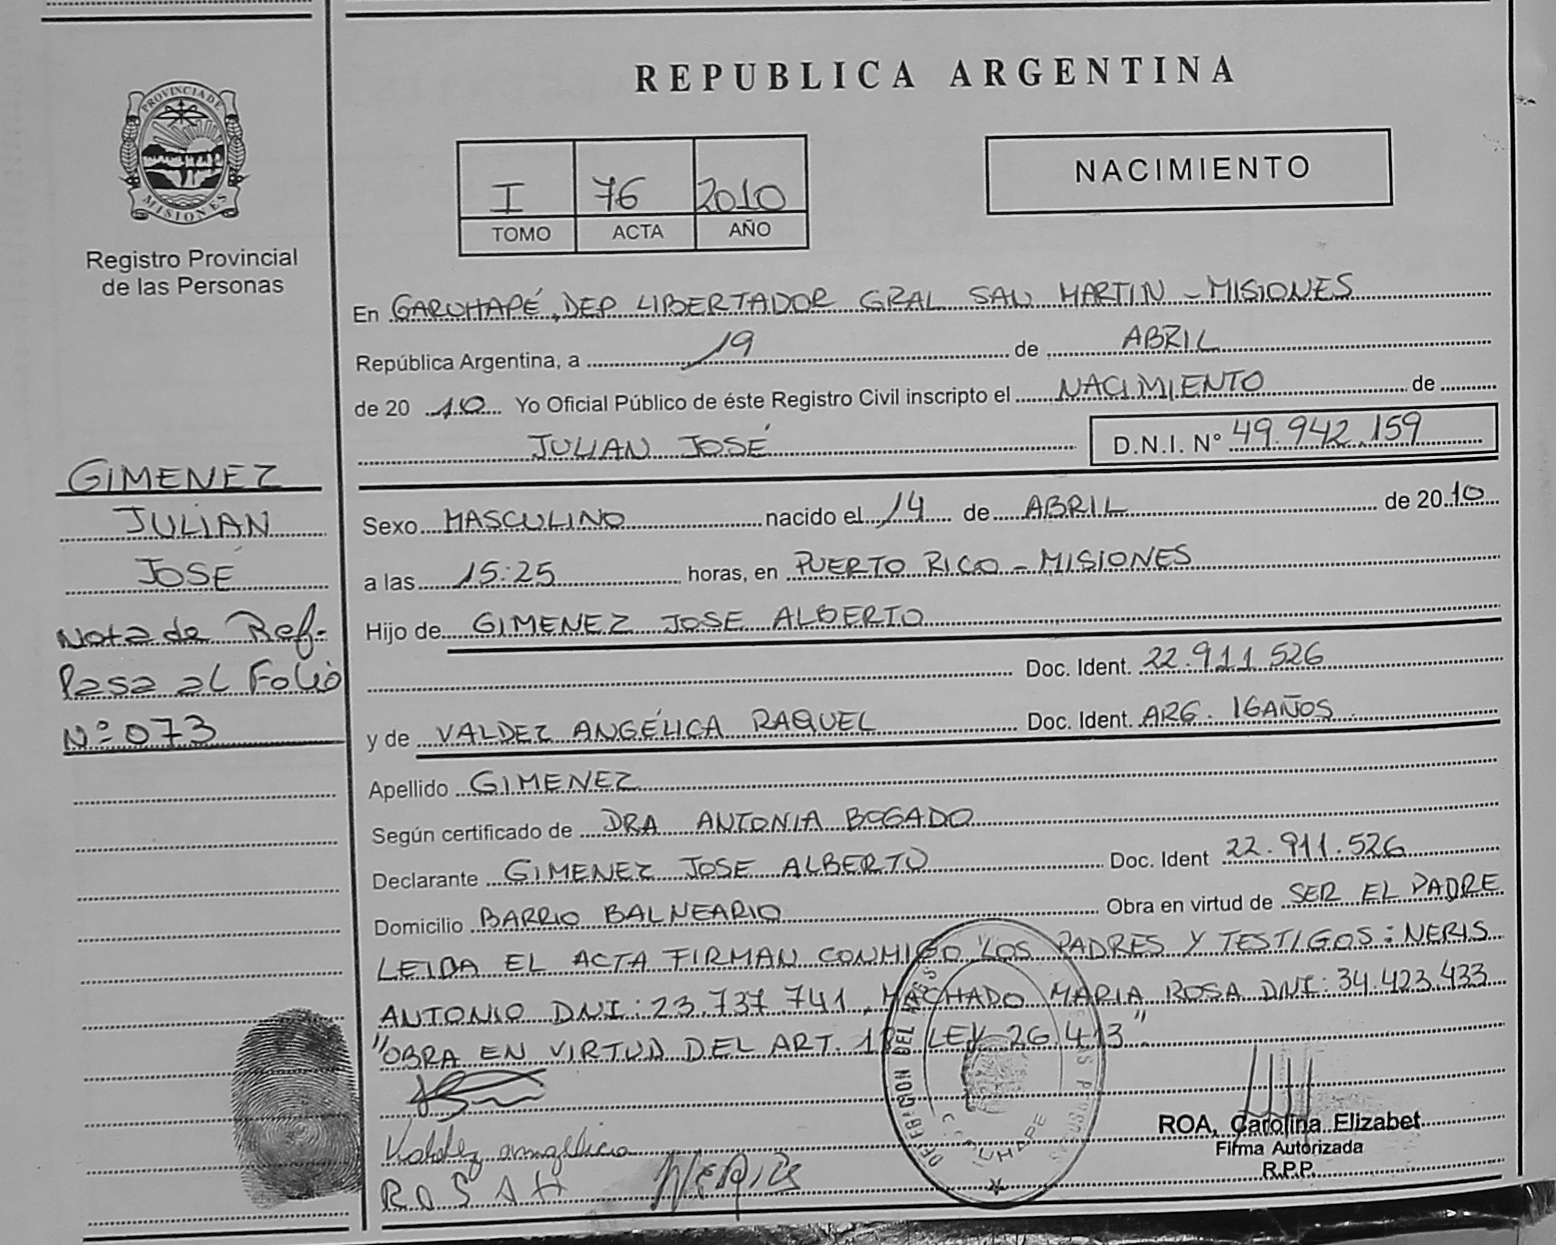 REPUBLICA ARGENTINA
PROVINCIA DE
MISIONES
Registro Provincial
de las Personas
I 76 2010
TOMO ACTA AÑO
NACIMIENTO
En GARUHAPÉ, DEP LIBERTADOR GRAL SAN MARTIN - MISIONES
República Argentina, a 19 de ABRIL
de 20 10 Yo Oficial Público de éste Registro Civil inscripto el NACIMIENTO de
JULIAN JOSÉ D.N.I. Nº 49.942.159
GIMENEZ
JULIAN
JOSÉ
Nota de Ref-
Pasa al Folio
Nº 073
Sexo MASCULINO nacido el 14 de ABRIL de 20 10
a las 15:25 horas, en PUERTO RICO - MISIONES
Hijo de GIMENEZ JOSE ALBERTO
Doc. Ident. 22.911.526
y de VALDEZ ANGÉLICA RAQUEL Doc. Ident. ARG. 16 AÑOS
Apellido GIMENEZ
Según certificado de DRA ANTONIA BOGADO
Declarante GIMENEZ JOSE ALBERTO Doc. Ident 22.911.526
Domicilio BARRIO BALNEARIO Obra en virtud de SER EL PADRE
LEIDA EL ACTA FIRMAN CONMIGO LOS PADRES Y TESTIGOS: NERIS
ANTONIO DNI: 23.737.741, MACHADO MARIA ROSA DNI: 34.423.433
"OBRA EN VIRTUD DEL ART. LEY 26.413"
Valdez angelica
ROSA H NERIS
ROA, Carolina Elizabet
Firma Autorizada
R.P.P.